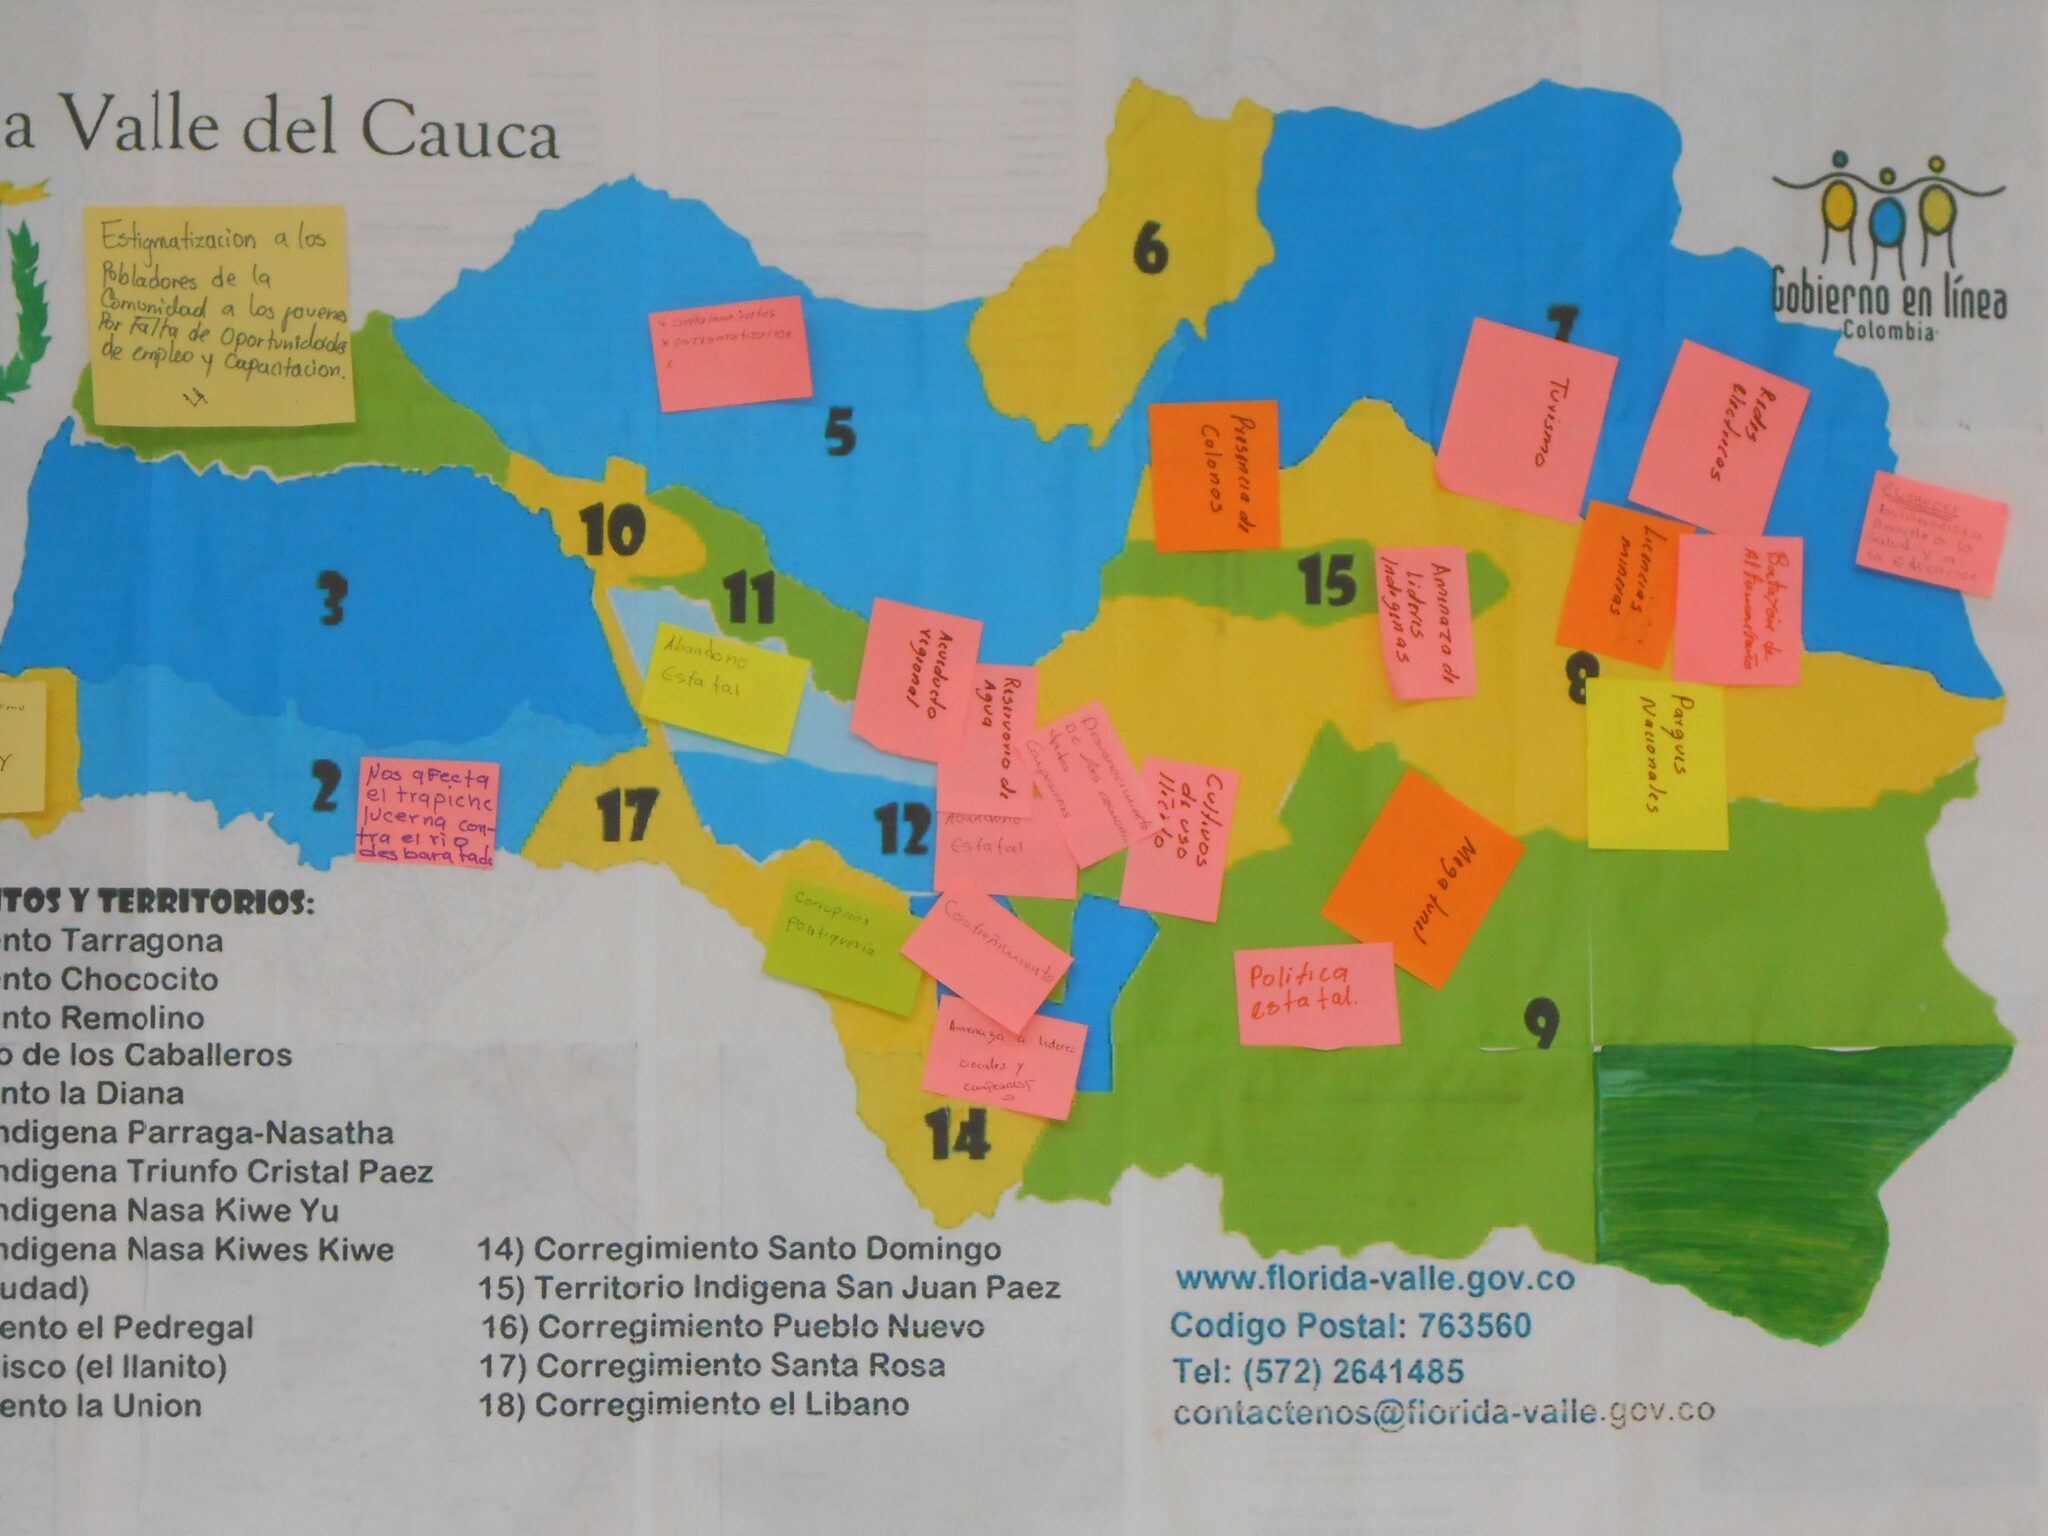 a Valle del Cauca
Estigmatizacion a los
Pobladores de la
Comunidad a los jovenes
Por Falta de Oportunidades
de empleo y Capacitacion.
* Señalamientos
* Estigmatización
*
6
7
Gobierno en línea
Colombia
5
Turismo
Redes
eléctricas
Presencia de
Colonos
10
3
11
15
Aminaza de
Lideris
Indegenas
Licencias
mineras
Batallón de
Alta montaña
la educacion
Abandono
Estatal
Acueducto
regional
Reservorio de
Agua
8
Parquis
Nacionales
2
Nos afecta
el trapiche
lucerna con-
tra el rio
desbaratado
17
12
Abandono
Estatal
Desconocimiento
De las
Campesinas
Cultivos
de uso
ilícito
Mega tunel
Corrupcion
politiqueria
Costreñimiento
Politica
estatal.
9
Amenaza a lideres
sociales y
campesinos
14
TOS Y TERRITORIOS:
ento Tarragona
ento Chococito
nto Remolino
o de los Caballeros
nto la Diana
ndigena Parraga-Nasatha
ndigena Triunfo Cristal Paez
ndigena Nasa Kiwe Yu
ndigena Nasa Kiwes Kiwe
udad)
ento el Pedregal
isco (el llanito)
ento la Union
14) Corregimiento Santo Domingo
15) Territorio Indigena San Juan Paez
16) Corregimiento Pueblo Nuevo
17) Corregimiento Santa Rosa
18) Corregimiento el Libano
www.florida-valle.gov.co
Codigo Postal: 763560
Tel: (572) 2641485
contactenos@florida-valle.gov.co